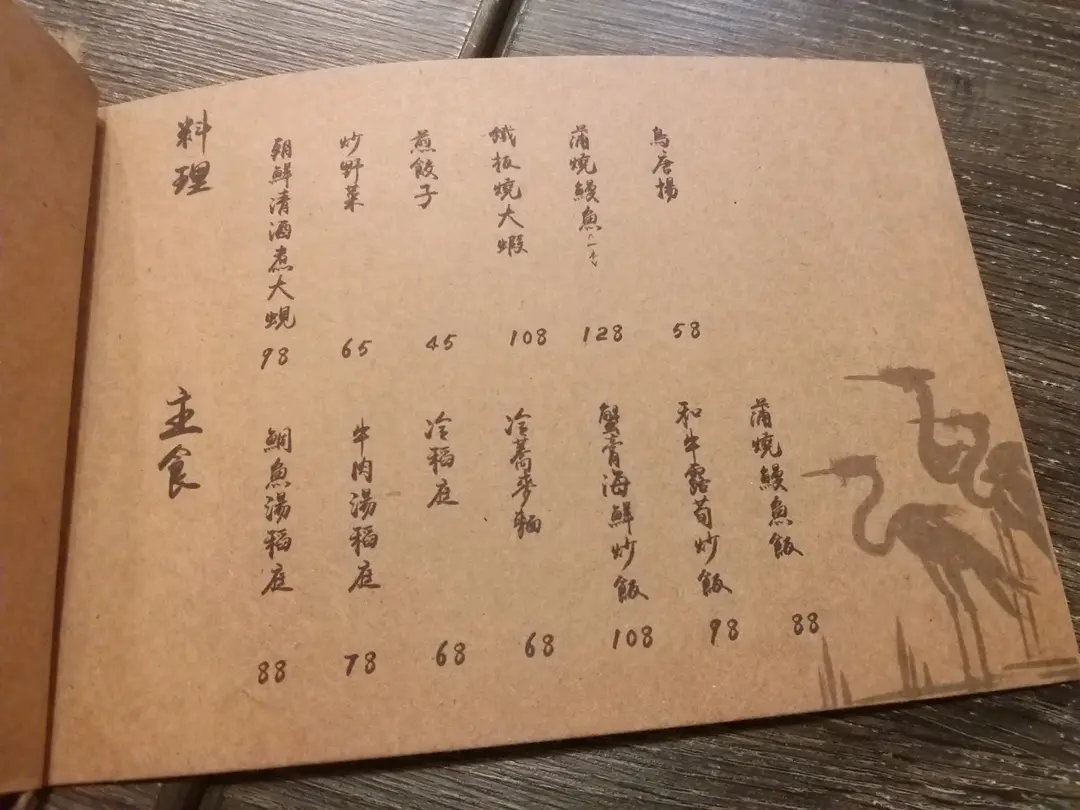 料理
朝鮮清酒煮大蜆
98
炒野菜
65
煎餃子
45
鐵板燒大蝦
108
蒲燒鰻魚(一本)
128
鳥唐揚
58
主食
鯛魚湯稻庭
88
牛肉湯稻庭
78
冷稻庭
68
冷蕎麥麵
68
蟹膏海鮮炒飯
108
和牛露荀炒飯
98
蒲燒鰻魚飯
88